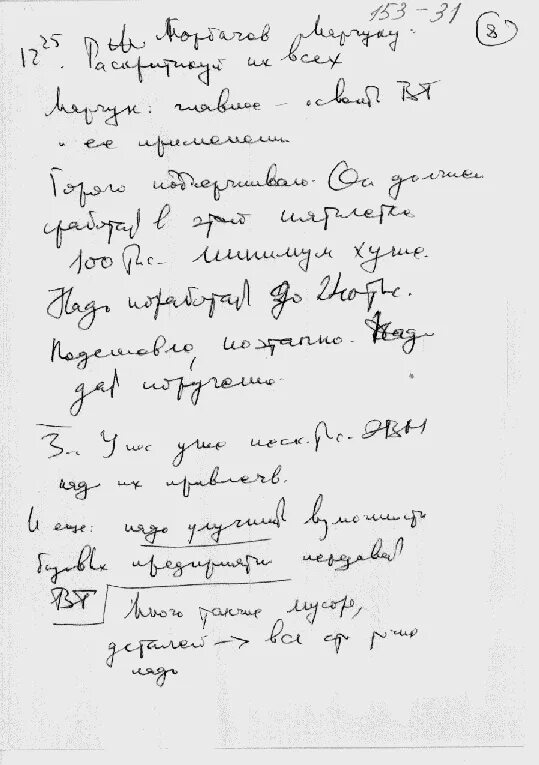 153-31
8
12 25. Горбачов Марчуку:
Раскритикуй их всех
Марчук: главное – освоить ВТ
и ее применени
Горячо подчеркиваю. Он должны
сработать в этой пятилетке
100 тыс. минимум хуже.
Надо поработать до
Подешовле, поэтапно. Надо
дать поручено.
3. У нас уже неск. тыс. ЭВМ
надо их привлечь.
И еще: надо улучшить возможность
базовых предприяти передавать
ВТ Много также мусора,
деталей → все
надо